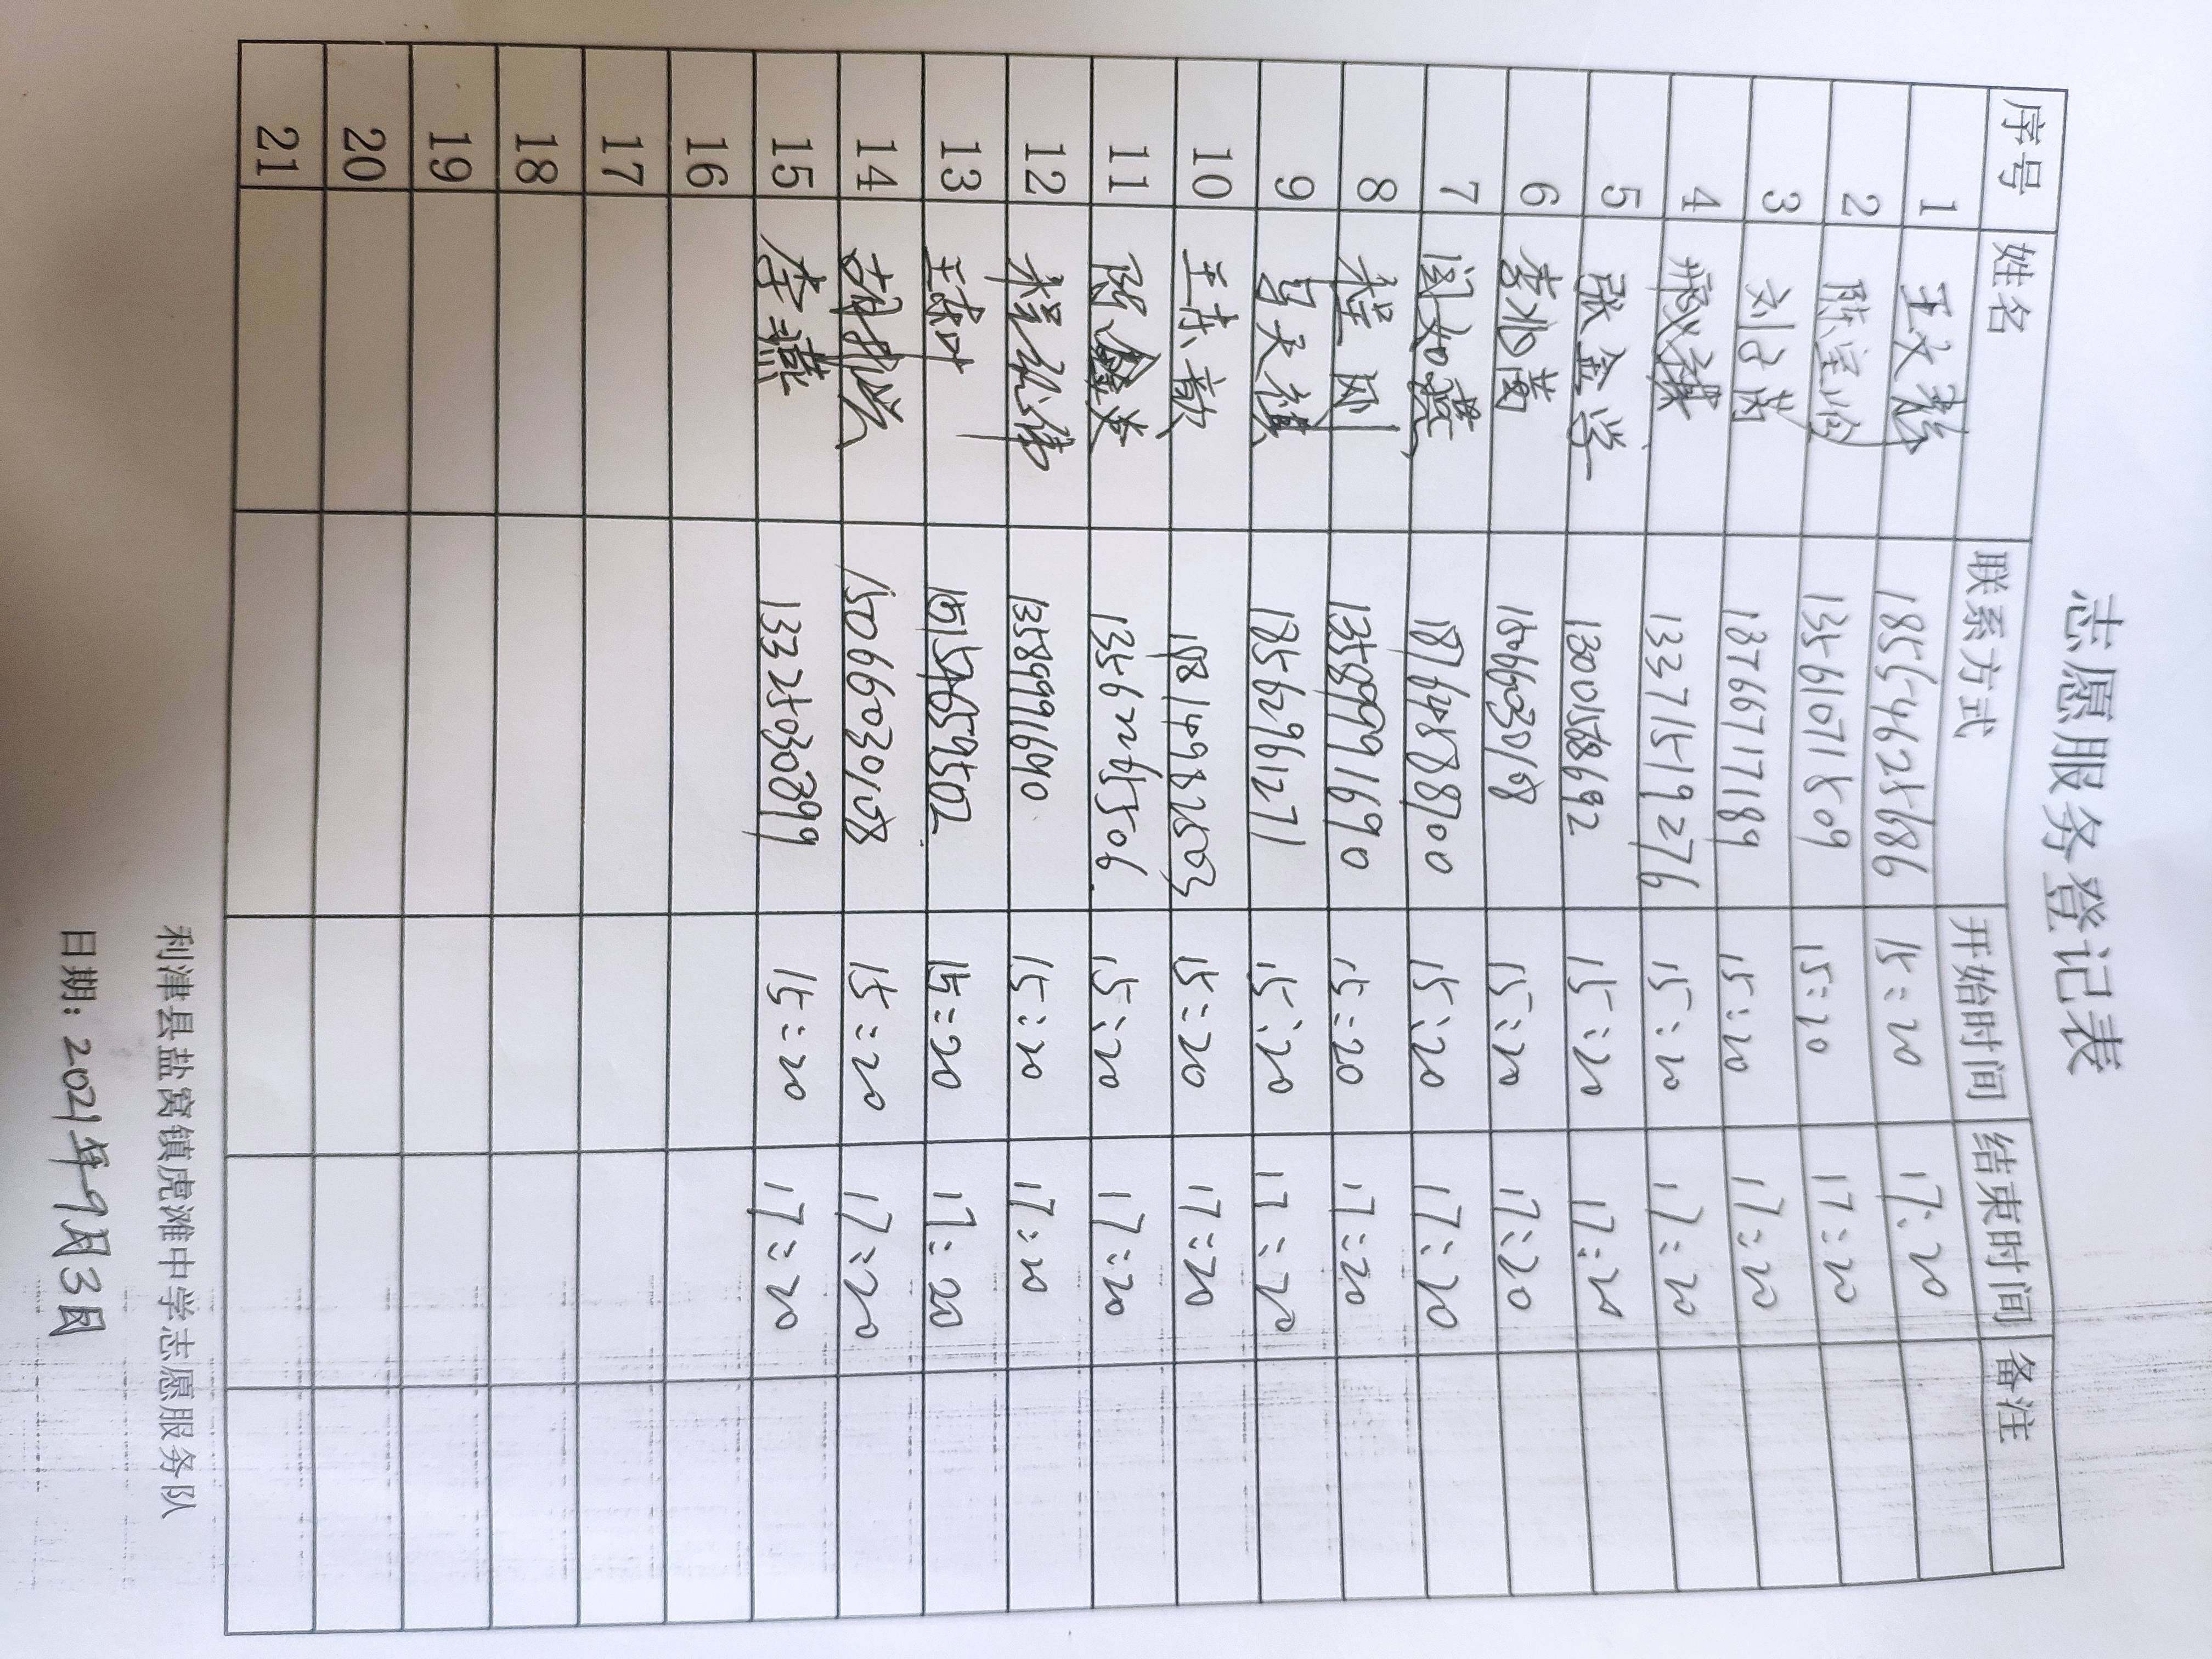 志愿服务登记表
序号 姓名 联系方式 开始时间 结束时间 备注
1 王文彩 18554625686 15:20 17:20
2 陈宝 13561071809 15:20 17:20
3 刘 13766717189 15:20 17:20
4 13371519276 15:20 17:20
5 张金学 13001568692 15:20 17:20
6 李小菌 15066030158 15:20 17:20
7 闫如燕 18764588700 15:20 17:20
8 程刚 13589991690 15:20 17:20
9 吕天镇 15:20 17:20
10 王寿歆 15:20 17:20
11 陈鑫美 15:20 17:20
12 程弘伟 13589991690 15:20 17:20
13 王 15154659502 15:20 17:20
14 胡 15066030158 15:20 17:20
15 李燕 13325030899 15:20 17:20
16
17
18
19
20
21
利津县盐窝镇虎滩中学志愿服务队
日期：2021年9月3日